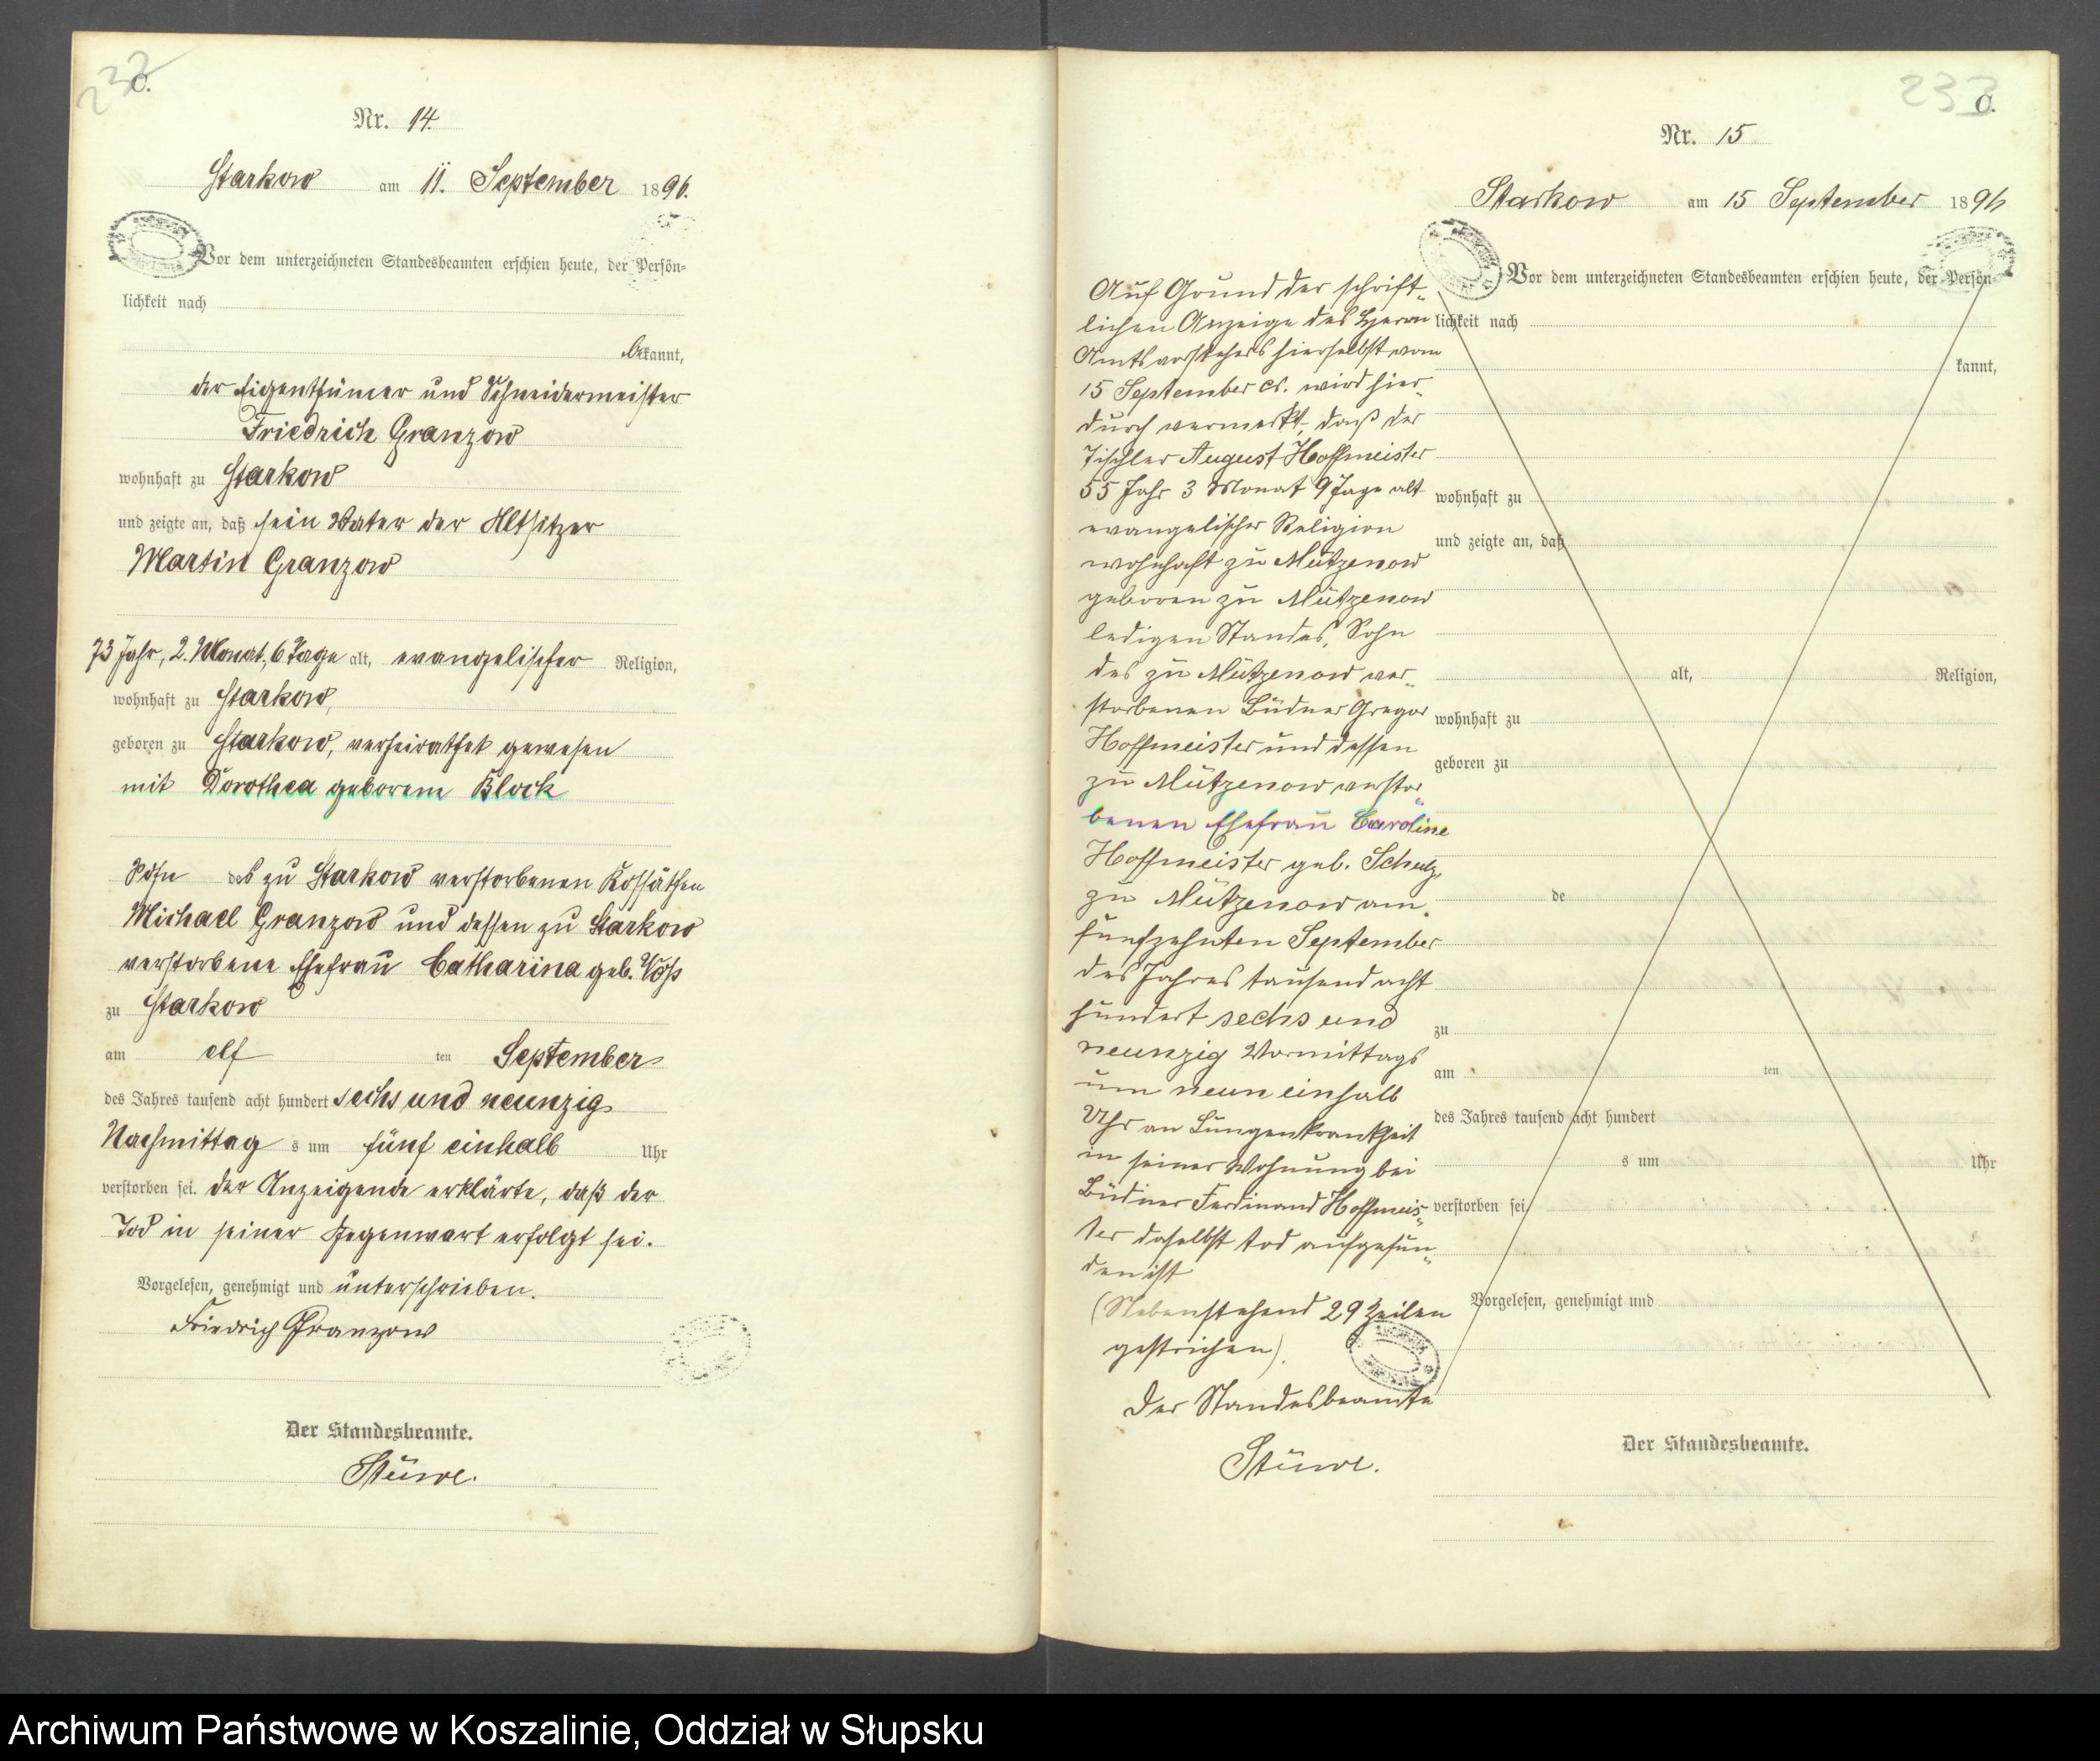 232
C.
Nr. 14.
Starkow am 11. September 1896.
Vor dem unterzeichneten Standesbeamten erschien heute, der Persön-
lichkeit nach
bekannt,
der Eigenthümer und Schneidermeister
Friedrich Granzow
wohnhaft zu Starkow
und zeigte an, daß sein Vater der Altsitzer
Martin Granzow
73 Jahr, 2. Monat, 6 Tage alt, evangelischer Religion,
wohnhaft zu Starkow,
geboren zu Starkow, verheirathet gewesen
mit Dorothea geborene Block
Sohn des zu Starkow verstorbenen Kossäthen
Michael Granzow und dessen zu Starkow
verstorbene Ehefrau Catharina geb. Voß
zu Starkow
am elf ten September
des Jahres tausend acht hundert sechs und neunzig
Nachmittag s um fünf einhalb Uhr
verstorben sei. der Anzeigende erklärte, daß der
Tod in seiner Gegenwart erfolgt sei.
Vorgelesen, genehmigt und unterschrieben.
Friedrich Granzow
Der Standesbeamte.
Stüwe.
233
C.
Nr. 15
Starkow am 15 September 1896
Auf Grund der schrift-
lichen Anzeige des Herrn
Amtsvorstehers hierselbst vom
15 September cr. wird hier-
durch vermerkt, daß der
Tischler August Hoffmeister
55 Jahr 3 Monat 9 Tage alt
evangelischer Religion
wohnhaft zu Mützenow
geboren zu Mützenow
ledigen Standes, Sohn
des zu Mützenow ver-
storbenen Büdner Gregor
Hoffmeister und dessen
zu Mützenow verstor-
benen Ehefrau Caroline
Hoffmeister geb. Schulz,
zu Mützenow am
fünfzehnten September
des Jahres tausend acht
hundert sechs und
neunzig Vormittags
um neun einhalb
Uhr an Lungenkrankheit
in seiner Wohnung bei
Büdner Ferdinand Hoffmeis-
ter daselbst tod aufgefun-
den ist
(Nebenstehend 29 Zeilen
gestrichen).
Der Standesbeamte
Stüwe.
Vor dem unterzeichneten Standesbeamten erschien heute, der Persön-
lichkeit nach
kannt,
wohnhaft zu
und zeigte an, daß
alt, Religion,
wohnhaft zu
geboren zu
de
zu
am ten
des Jahres tausend acht hundert
s um Uhr
verstorben sei
Vorgelesen, genehmigt und
Der Standesbeamte.
Archiwum Państwowe w Koszalinie, Oddział w Słupsku